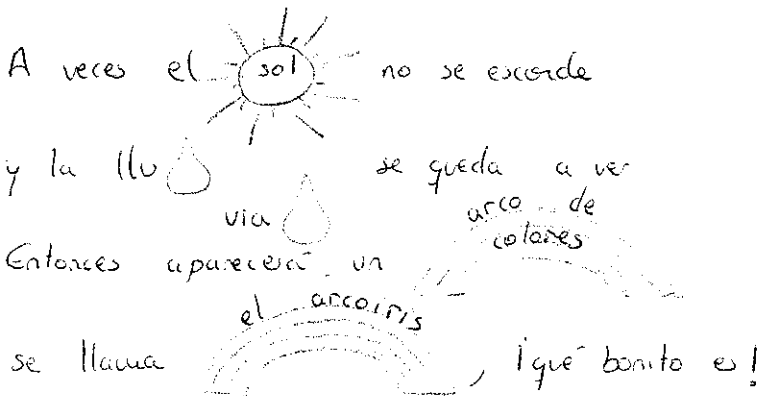 A veces el sol no se esconde
y la llu
via
se queda a ver
Entonces aparecerá un
arco de
colores
se llama
el arcoiris
, ¡qué bonito es!